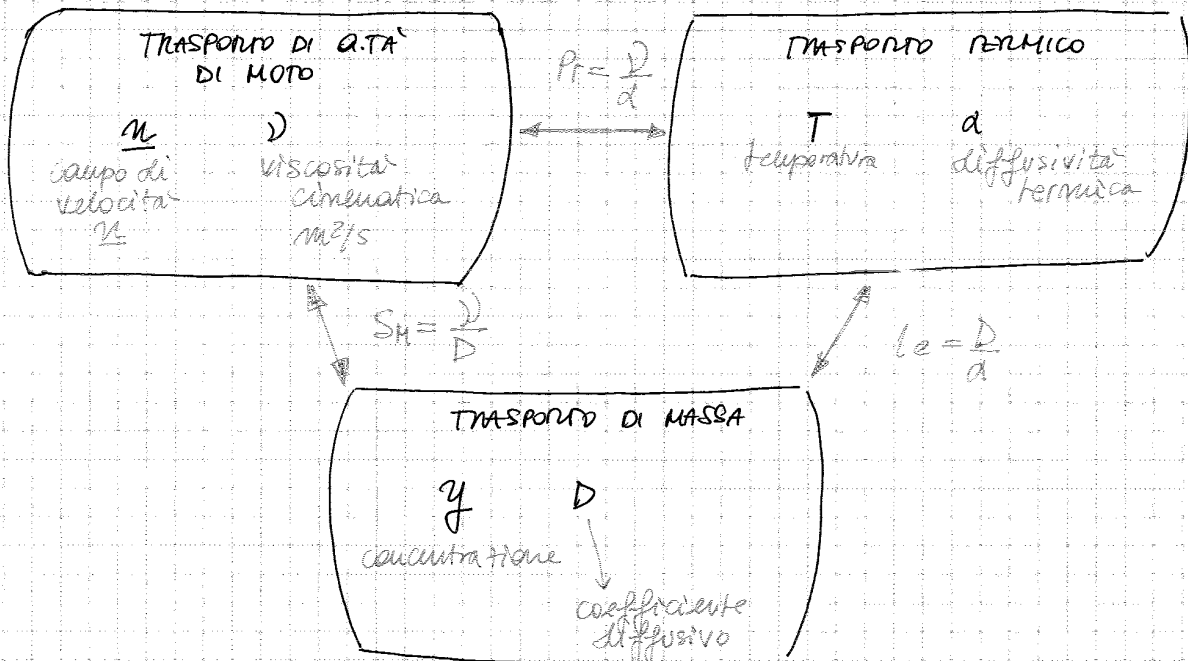 TRASPORTO DI Q.TA'
DI MOTO
u ν
campo di
velocità
u
viscosità
cinematica
m²/s
Pr = ν/α
TRASPORTO TERMICO
T α
temperatura
diffusività
termica
SH = ν/D
le = D/α
TRASPORTO DI MASSA
y D
concentrazione
coefficiente
diffusivo